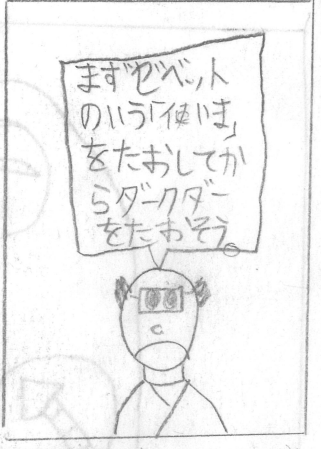 まずゼベット
のいう「使いま」
をたおしてか
らダークダー
をたおそう。